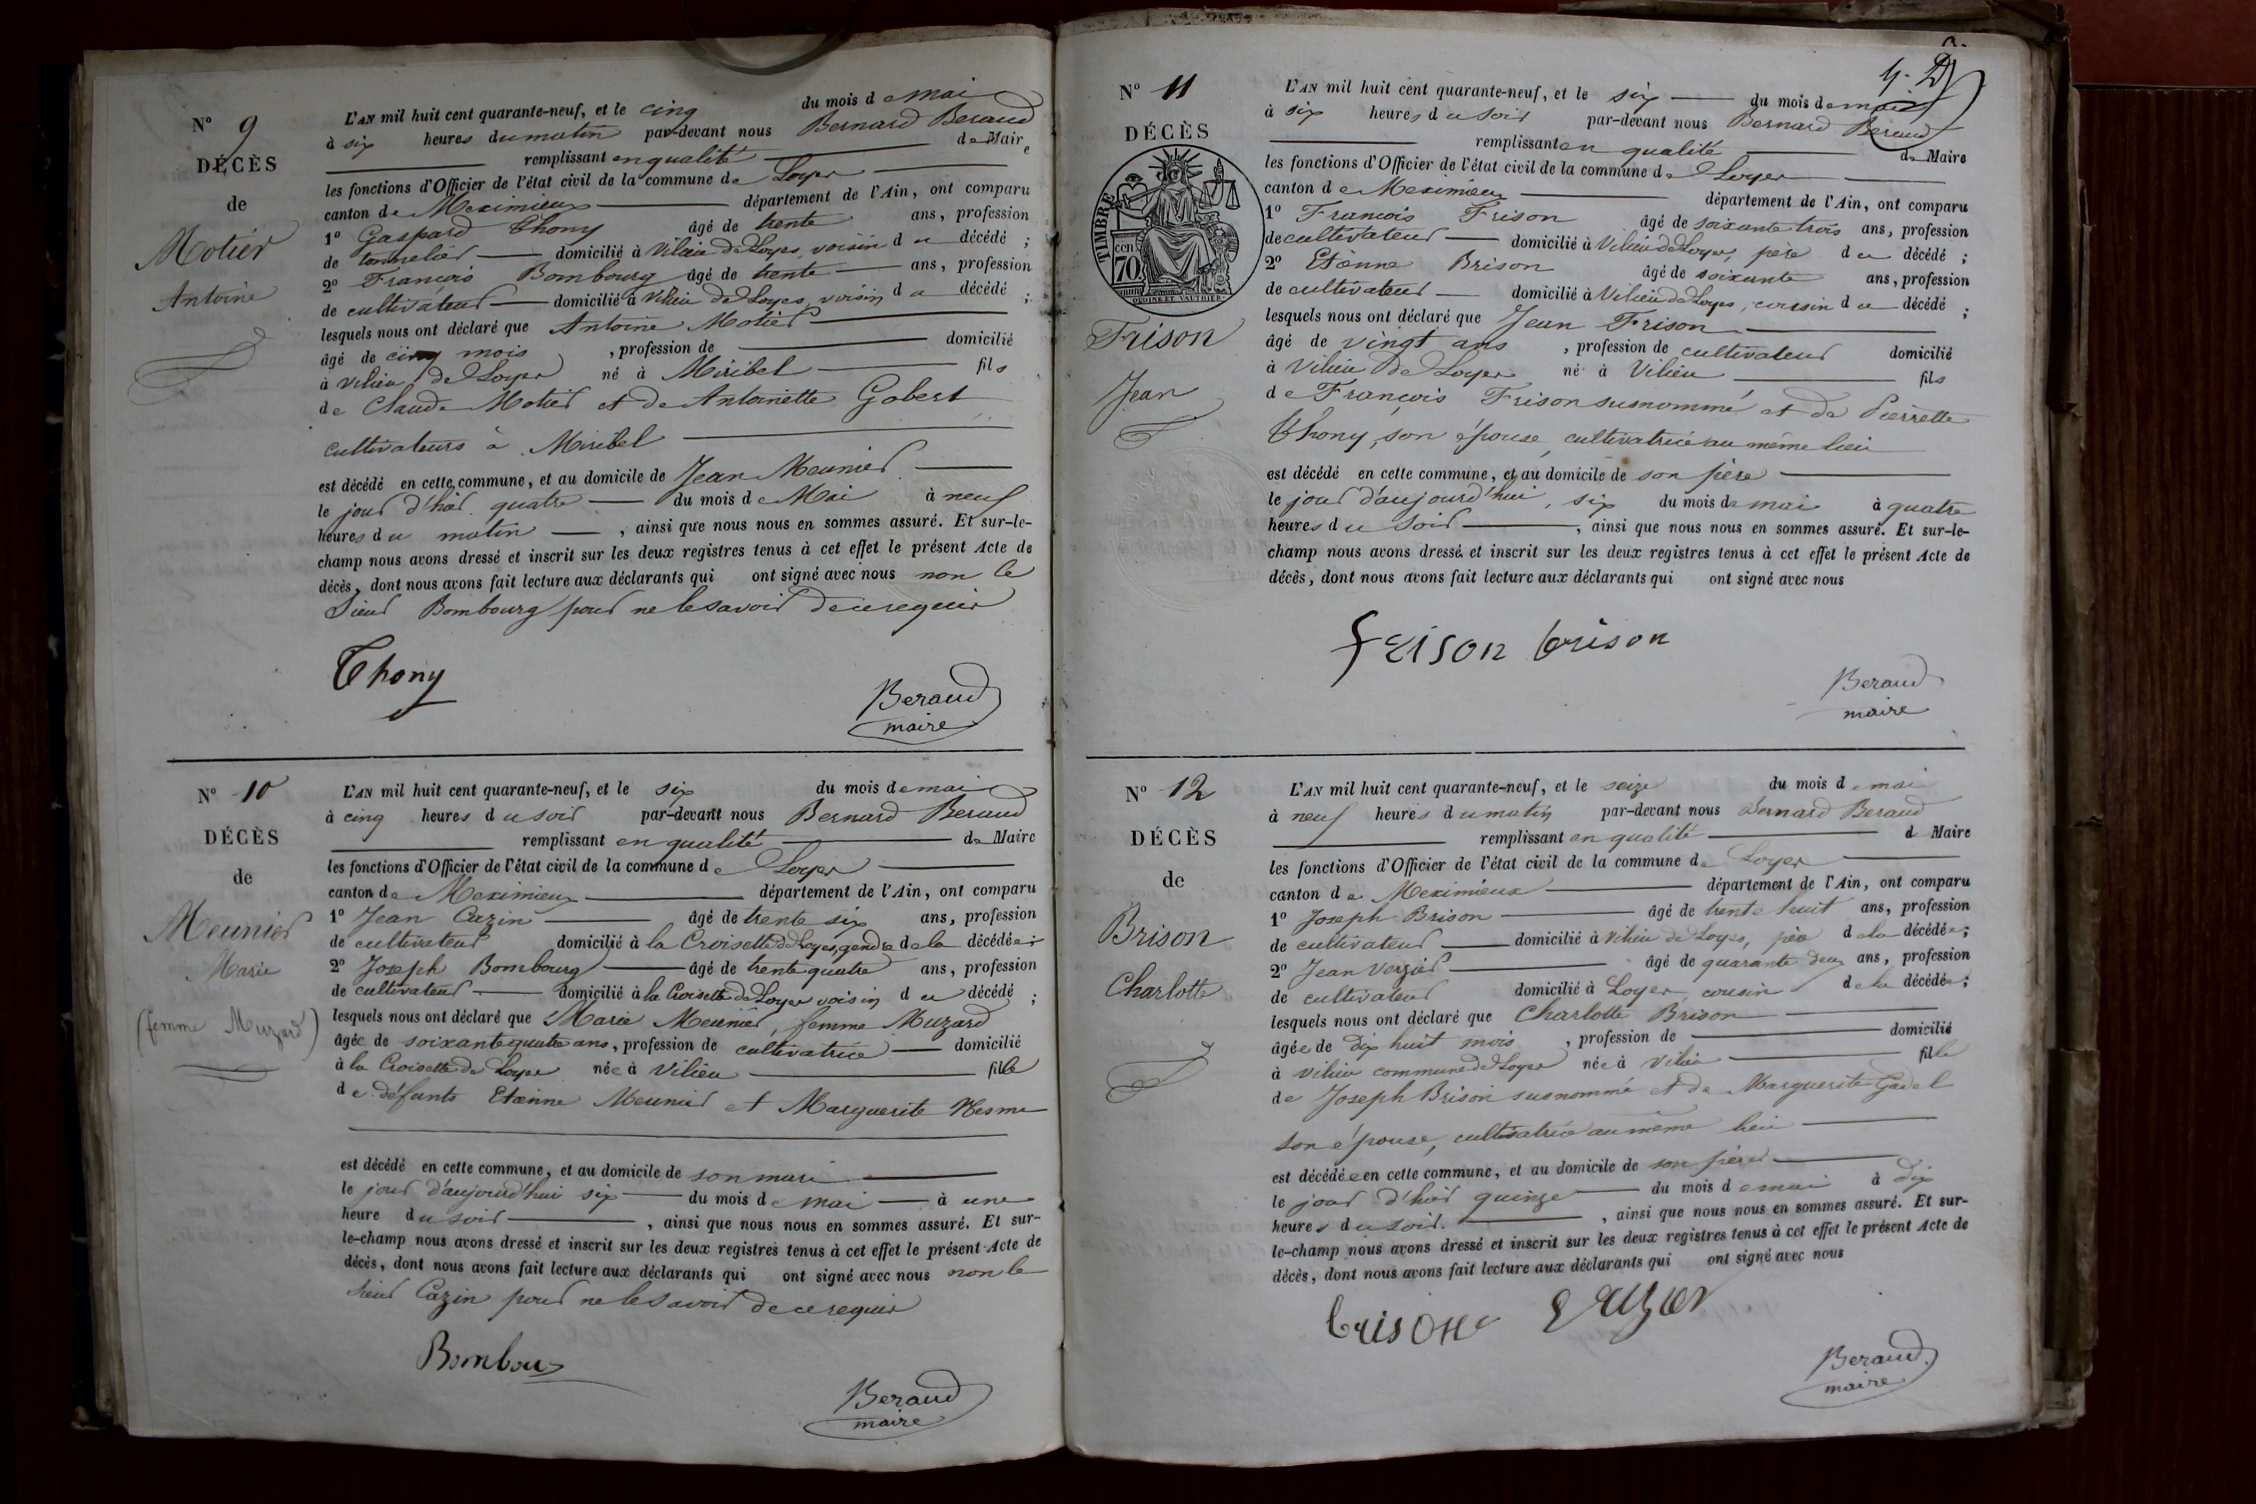 N° 9
DÉCÈS
de
Motier
Antoine
L'AN mil huit cent quarante-neuf, et le cinq du mois de mai
à six heures du matin par-devant nous Bernard Beraud
remplissant en qualité de Maire
les fonctions d'Officier de l'état civil de la commune de Loyes
canton de Meximieux département de l'Ain, ont comparu
1° Gaspard Thony âgé de trente ans, profession
de tonnelier domicilié à Vilieu de Loyes, voisin du décédé ;
2° François Bombourg âgé de trente ans, profession
de cultivateur domicilié à Vilieu de Loyes, voisin du décédé ;
lesquels nous ont déclaré que Antoine Motier
âgé de cinq mois , profession de domicilié
à Vilieu de Loyes né à Miribel fils
de Claude Motier et de Antoinette Gobert
cultivateurs à Miribel
est décédé en cette commune, et au domicile de Jean Meunier
le jour d'hier quatre du mois de Mai à neuf
heures du matin , ainsi que nous nous en sommes assuré. Et sur-le-
champ nous avons dressé et inscrit sur les deux registres tenus à cet effet le présent Acte de
décès, dont nous avons fait lecture aux déclarants qui ont signé avec nous non le
Sieur Bombourg pour ne le savoir de ce requis
Thony
Beraud
maire
N° 10
DÉCÈS
de
Meunier
Marie
(femme Muzard)
L'AN mil huit cent quarante-neuf, et le six du mois de mai
à cinq heures du soir par-devant nous Bernard Beraud
remplissant en qualité de Maire
les fonctions d'Officier de l'état civil de la commune de Loyes
canton de Meximieux département de l'Ain, ont comparu
1° Jean Cazin âgé de trente six ans, profession
de cultivateur domicilié à la Croisette de Loyes, gendre de la décédée ;
2° Joseph Bombourg âgé de trente quatre ans, profession
de cultivateur domicilié à la Croisette de Loyes voisin du décédé ;
lesquels nous ont déclaré que Marie Meunier, femme Muzard
âgée de soixante quatre ans, profession de cultivatrice domicilié
à la Croisette de Loyes née à Vilieu fille
de défunts Etienne Meunier et Marguerite Nesme
est décédé en cette commune, et au domicile de son mari
le jour d'aujourd'hui six du mois de mai à une
heure du soir , ainsi que nous nous en sommes assuré. Et sur-
le-champ nous avons dressé et inscrit sur les deux registres tenus à cet effet le présent Acte de
décès, dont nous avons fait lecture aux déclarants qui ont signé avec nous non le
sieur Cazin pour ne le savoir de ce requis
Bombou
Beraud
maire
N° 11
DÉCÈS
TIMBRE
cen
70
Frison
Jean
L'AN mil huit cent quarante-neuf, et le six du mois de mai
à six heures du soir par-devant nous Bernard Beraud
remplissant en qualité de Maire
les fonctions d'Officier de l'état civil de la commune de Loyes
canton de Meximieux département de l'Ain, ont comparu
1° Francois Frison âgé de soixante trois ans, profession
de cultivateur domicilié à Vilieu de Loyes, père du décédé ;
2° Etienne Brison âgé de soixante ans, profession
de cultivateur domicilié à Vilieu de Loyes, cousin du décédé ;
lesquels nous ont déclaré que Jean Frison
âgé de vingt ans , profession de cultivateur domicilié
à Vilieu de Loyes né à Vilieu fils
de François Frison susnommé et de Pierrette
Thony, son épouse, cultivatrice au même lieu
est décédé en cette commune, et au domicile de son père
le jour d'aujourd'hui, six du mois de mai à quatre
heures du soir , ainsi que nous nous en sommes assuré. Et sur-le-
champ nous avons dressé et inscrit sur les deux registres tenus à cet effet le présent Acte de
décès, dont nous avons fait lecture aux déclarants qui ont signé avec nous
frison brison
Beraud
maire
N° 12
DÉCÈS
de
Brison
Charlotte
L'AN mil huit cent quarante-neuf, et le seize du mois de mai
à neuf heures du matin par-devant nous Bernard Beraud
remplissant en qualité d Maire
les fonctions d'Officier de l'état civil de la commune de Loyes
canton de Meximieux département de l'Ain, ont comparu
1° Joseph Brison âgé de trente huit ans, profession
de cultivateur domicilié à Vilieu de Loyes, père de la décédée ;
2° Jean Verzier âgé de quarante deux ans, profession
de cultivateur domicilié à Loyes, cousin de la décédée ;
lesquels nous ont déclaré que Charlotte Brison
âgée de dix huit mois , profession de domicilié
à Vilieu commune de Loyes née à Vilieu fille
de Joseph Brison susnommé et de Marguerite Gadel
son épouse, cultivatrice au même lieu
est décédée en cette commune, et au domicile de son père
le jour d'hier quinze du mois de mai à dix
heures du soir. , ainsi que nous nous en sommes assuré. Et sur-
le-champ nous avons dressé et inscrit sur les deux registres tenus à cet effet le présent Acte de
décès, dont nous avons fait lecture aux déclarants qui ont signé avec nous
brison
Beraud
maire